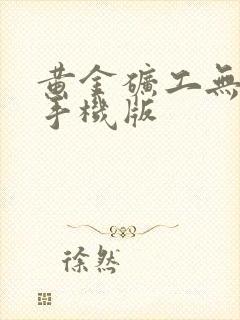 黃金礦工無
手機版
徐然